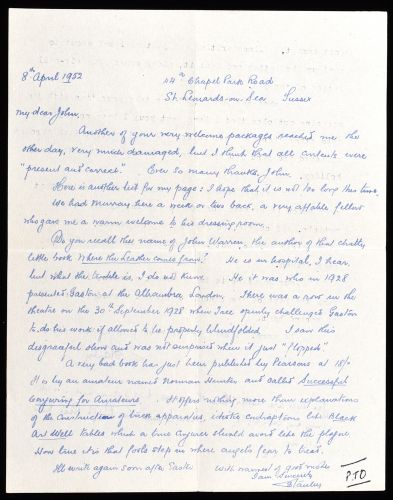 8th April 1952
44a Chapel Park Road
St. Leonards-on-Sea Sussex
My dear John,
Another of your very welcome packages reached me the
other day, very much damaged, but I think that all contents were
"present and correct". Ever so many thanks, John.
Here is another for my page: I hope that it is not too long this time.
We had Murray here a week or two back, a very affable fellow
who gave me a warm welcome to his dressing room.
Do you recall the name of John Warren, the author of that chatty
little book Where the Leather comes from? He is in hospital, I hear,
but what the trouble is, I do not know. He it was who in 1928
presented Gaston at the Alhambra, London. There was a row in the
theatre on the 30th September 1928 when I openly challenged Gaston
to do his work if allowed to be properly blindfolded. I saw this
disgraceful show and was not surprised when it just "flopped".
A very bad book has just been published by Pearsons at 15/-
It is by an amateur named Norman Hunter and called Successful
Conjuring for Amateurs. It offers nothing more than explanations
of the construction of trick apparatus, contraptions like Black
Art Well tables which a true conjurer should avoid like the plague.
How true it is that fools step in where angels fear to tread.
I'll write again soon after Easter. With warmest of good wishes
I am Sincerely
Stanley
PTO